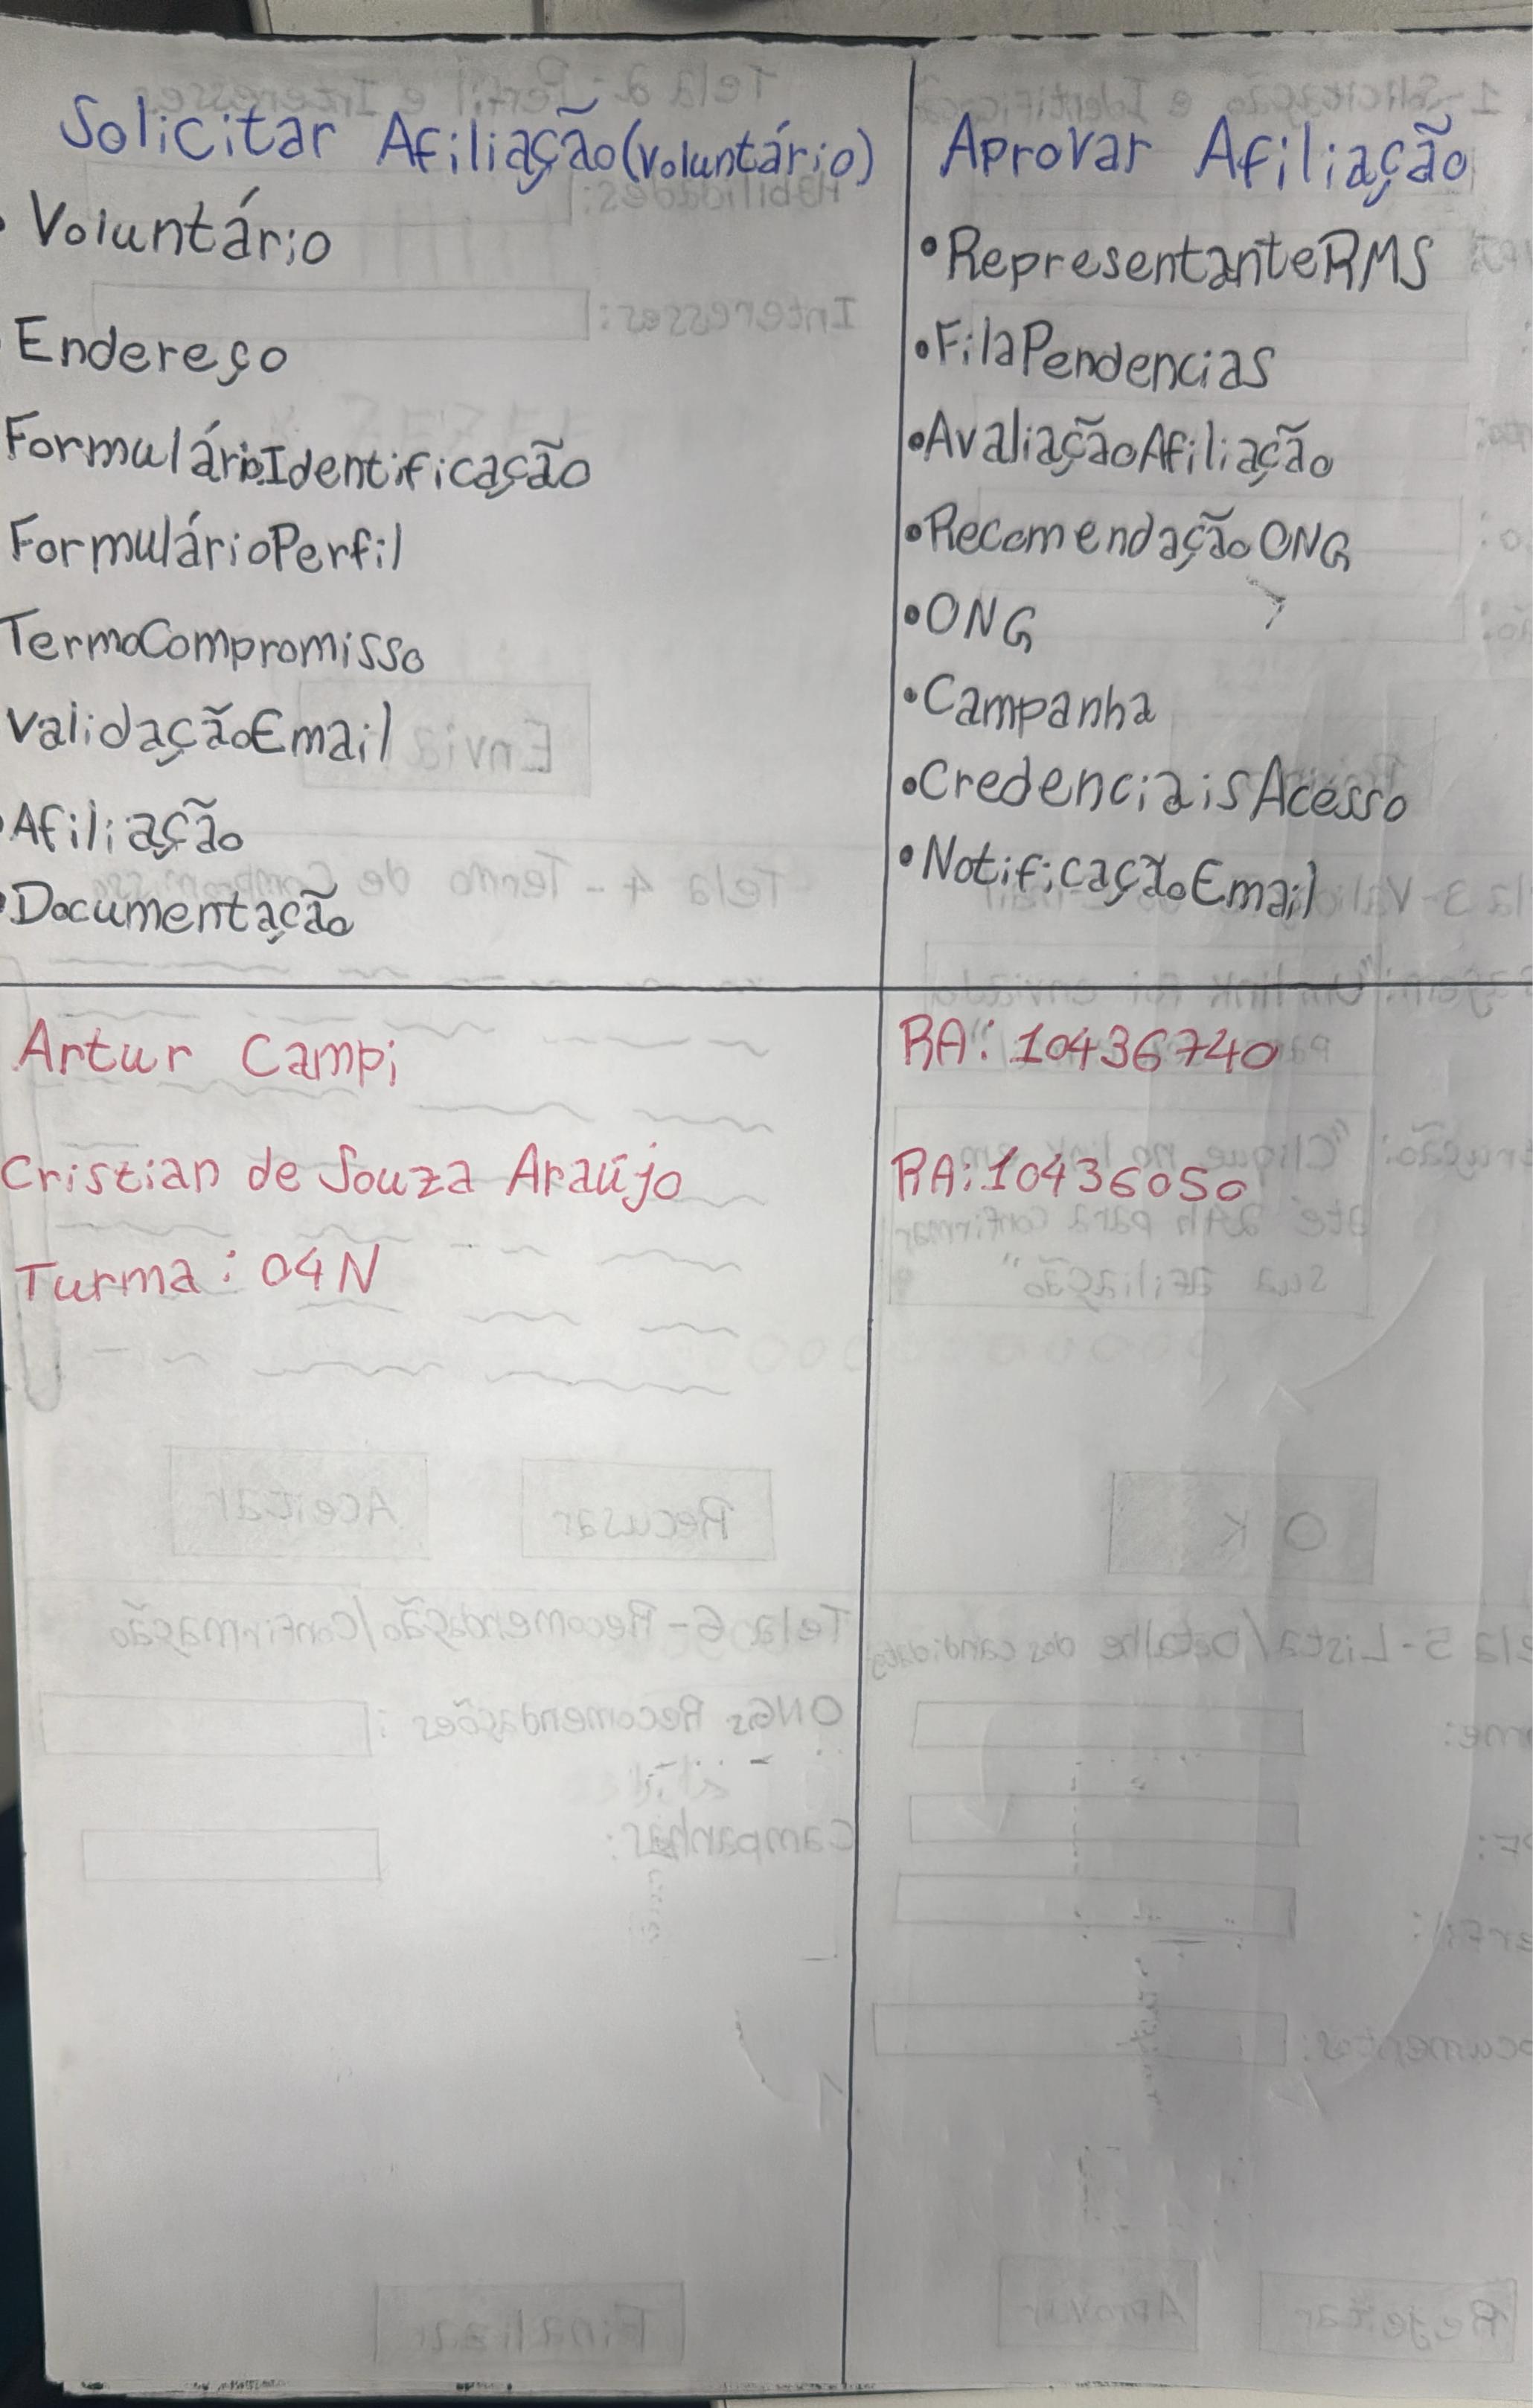 Solicitar Afiliação(voluntário)
• Voluntário
Endereço
FormulárioIdentificação
FormulárioPerfil
TermoCompromisso
ValidaçãoEmail
• Afiliação
• Documentação
Aprovar Afiliação
• RepresentanteRMS
• FilaPendencias
• AvaliaçãoAfiliação
• RecomendaçãoONG
• ONG
• Campanha
• CredenciaisAcesso
• NotificaçãoEmail
Artur Campi
RA: 10436740
Cristian de Souza Araújo
RA: 10436050
Turma: 04N